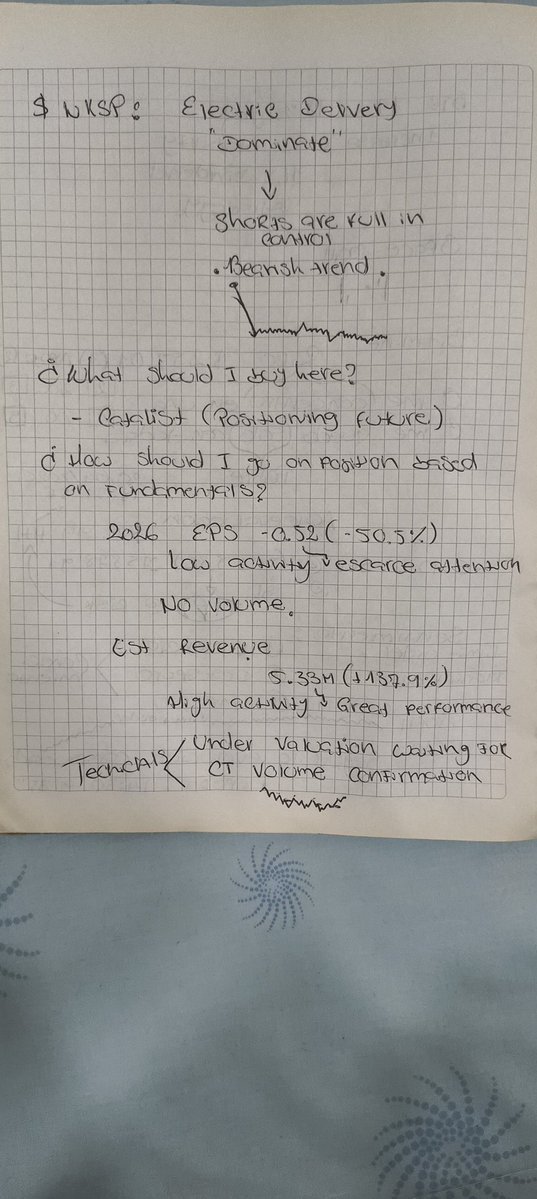 $ NKSP: Electric Delvery
"Dominate"
Shorts are full in
control
. Bearish trend .
¿ What should I buy here?
- Catalist (Positioning future)
¿ How should I go on position based
on Fundamentals?
2026 EPS -0.52 (-50.5%)
Low activity escarce attention
No volume.
Est Revenue
5.33M (+137.9%)
High activity Great performance
Under Valuation waiting for
Technicals
CT Volume confirmation